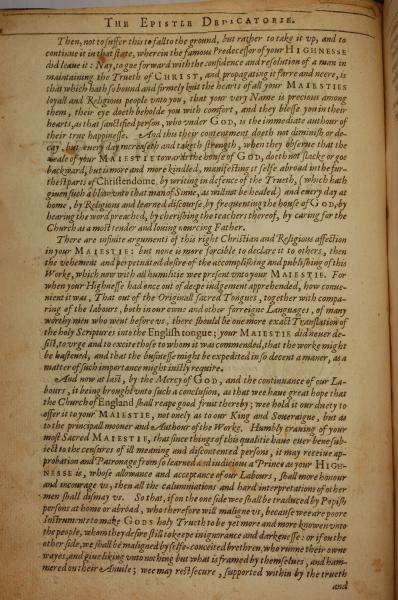 THE EPISTLE DEDICATORIE.
Then, not to suffer this to fall to the ground, but rather to take it vp, and to
continue it in that state, wherein the famous Predecessor of your HIGHNESSE
did leaue it: Nay, to goe forward with the confidence and resolution of a man in
maintaining the Trueth of CHRIST, and propagating it farre and neere, is
that which hath so bound and firmely knit the hearts of all your MAIESTIES
loyall and Religious people vnto you, that your very Name is precious among
them, their eye doeth behold you with comfort, and they blesse you in their
hearts, as that sanctified person, who vnder GOD, is the immediate authour of
their true happinesse. And this their contentment doeth not diminish or de-
cay, but euery day increaseth and taketh strength, when they obserue that the
zeale of your MAIESTIE towards the house of GOD, doeth not slacke or goe
backward, but is more and more kindled, manifesting it selfe abroad in the fur-
thest parts of Christendome, by writing in defence of the Trueth, (which hath
giuen such a blow vnto that man of Sinne, as will not be healed) and euery day at
home, by Religious and learned discourse, by frequenting the house of GOD, by
hearing the word preached, by cherishing the teachers thereof, by caring for the
Church as a most tender and louing nourcing Father.
There are infinite arguments of this right Christian and Religious affection
in your MAIESTIE: but none is more forcible to declare it to others, then
the vehement and perpetuated desire of the accomplishing and publishing of this
Worke, which now with all humilitie wee present vnto your MAIESTIE. For
when your Highnesse had once out of deepe iudgement apprehended, how conue-
nient it was, That out of the Originall sacred Tongues, together with compa-
ring of the labours, both in our owne and other forreigne Languages, of many
worthy men who went before vs, there should be one more exact Translation of
the holy Scriptures into the English tongue; your MAIESTIE did neuer de-
sist, to vrge and to excite those to whom it was commended, that the worke might
be hastened, and that the businesse might be expedited in so decent a maner, as a
matter of such importance might iustly require.
And now at last, by the Mercy of GOD, and the continuance of our La-
bours, it being brought vnto such a conclusion, as that wee haue great hope that
the Church of England shall reape good fruit thereby; wee hold it our duety to
offer it to your MAIESTIE, not onely as to our King and Soueraigne, but as
to the principall moouer and Author of the Worke. Humbly crauing of your
most Sacred MAIESTIE, that since things of this qualitie haue euer bene sub-
iect to the censures of ill meaning and discontented persons, it may receiue ap-
probation and Patronage from so learned and iudicious a Prince as your HIGH-
NESSE is, whose allowance and acceptance of our Labours, shall more honour
and incourage vs, then all the calumniations and hard interpretations of other
men shall dismay vs. So that, if on the one side wee shall be traduced by Popish
persons at home or abroad, who therefore will maligne vs, because wee are poore
Instruments to make GODS holy Trueth to be yet more and more knowen vnto
the people, whom they desire still to keepe in ignorance and darkenesse: or if on the
other side, we shall be maligned by selfe-conceited brethren, who runne their owne
wayes, and giue liking vnto nothing but what is framed by themselues, and ham-
mered on their Anuile; wee may rest secure, supported within by the trueth
and